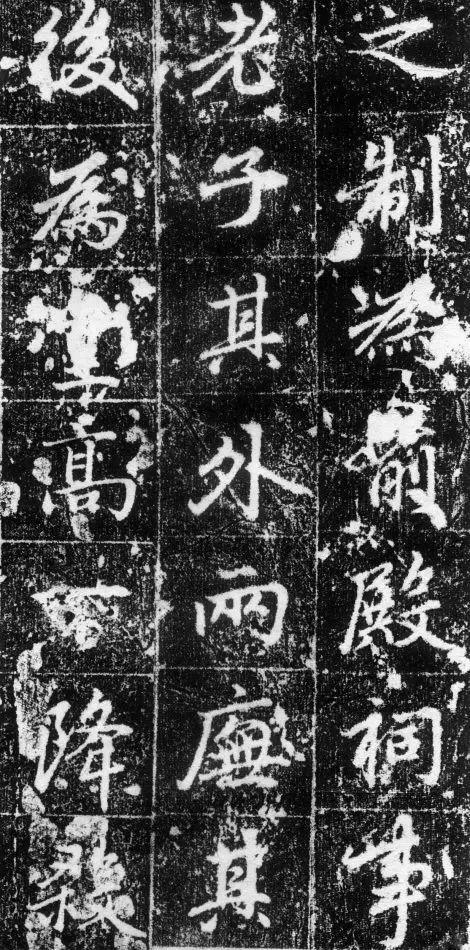 之制為前殿祠事
老子其外兩廡其
後為堂高降殺